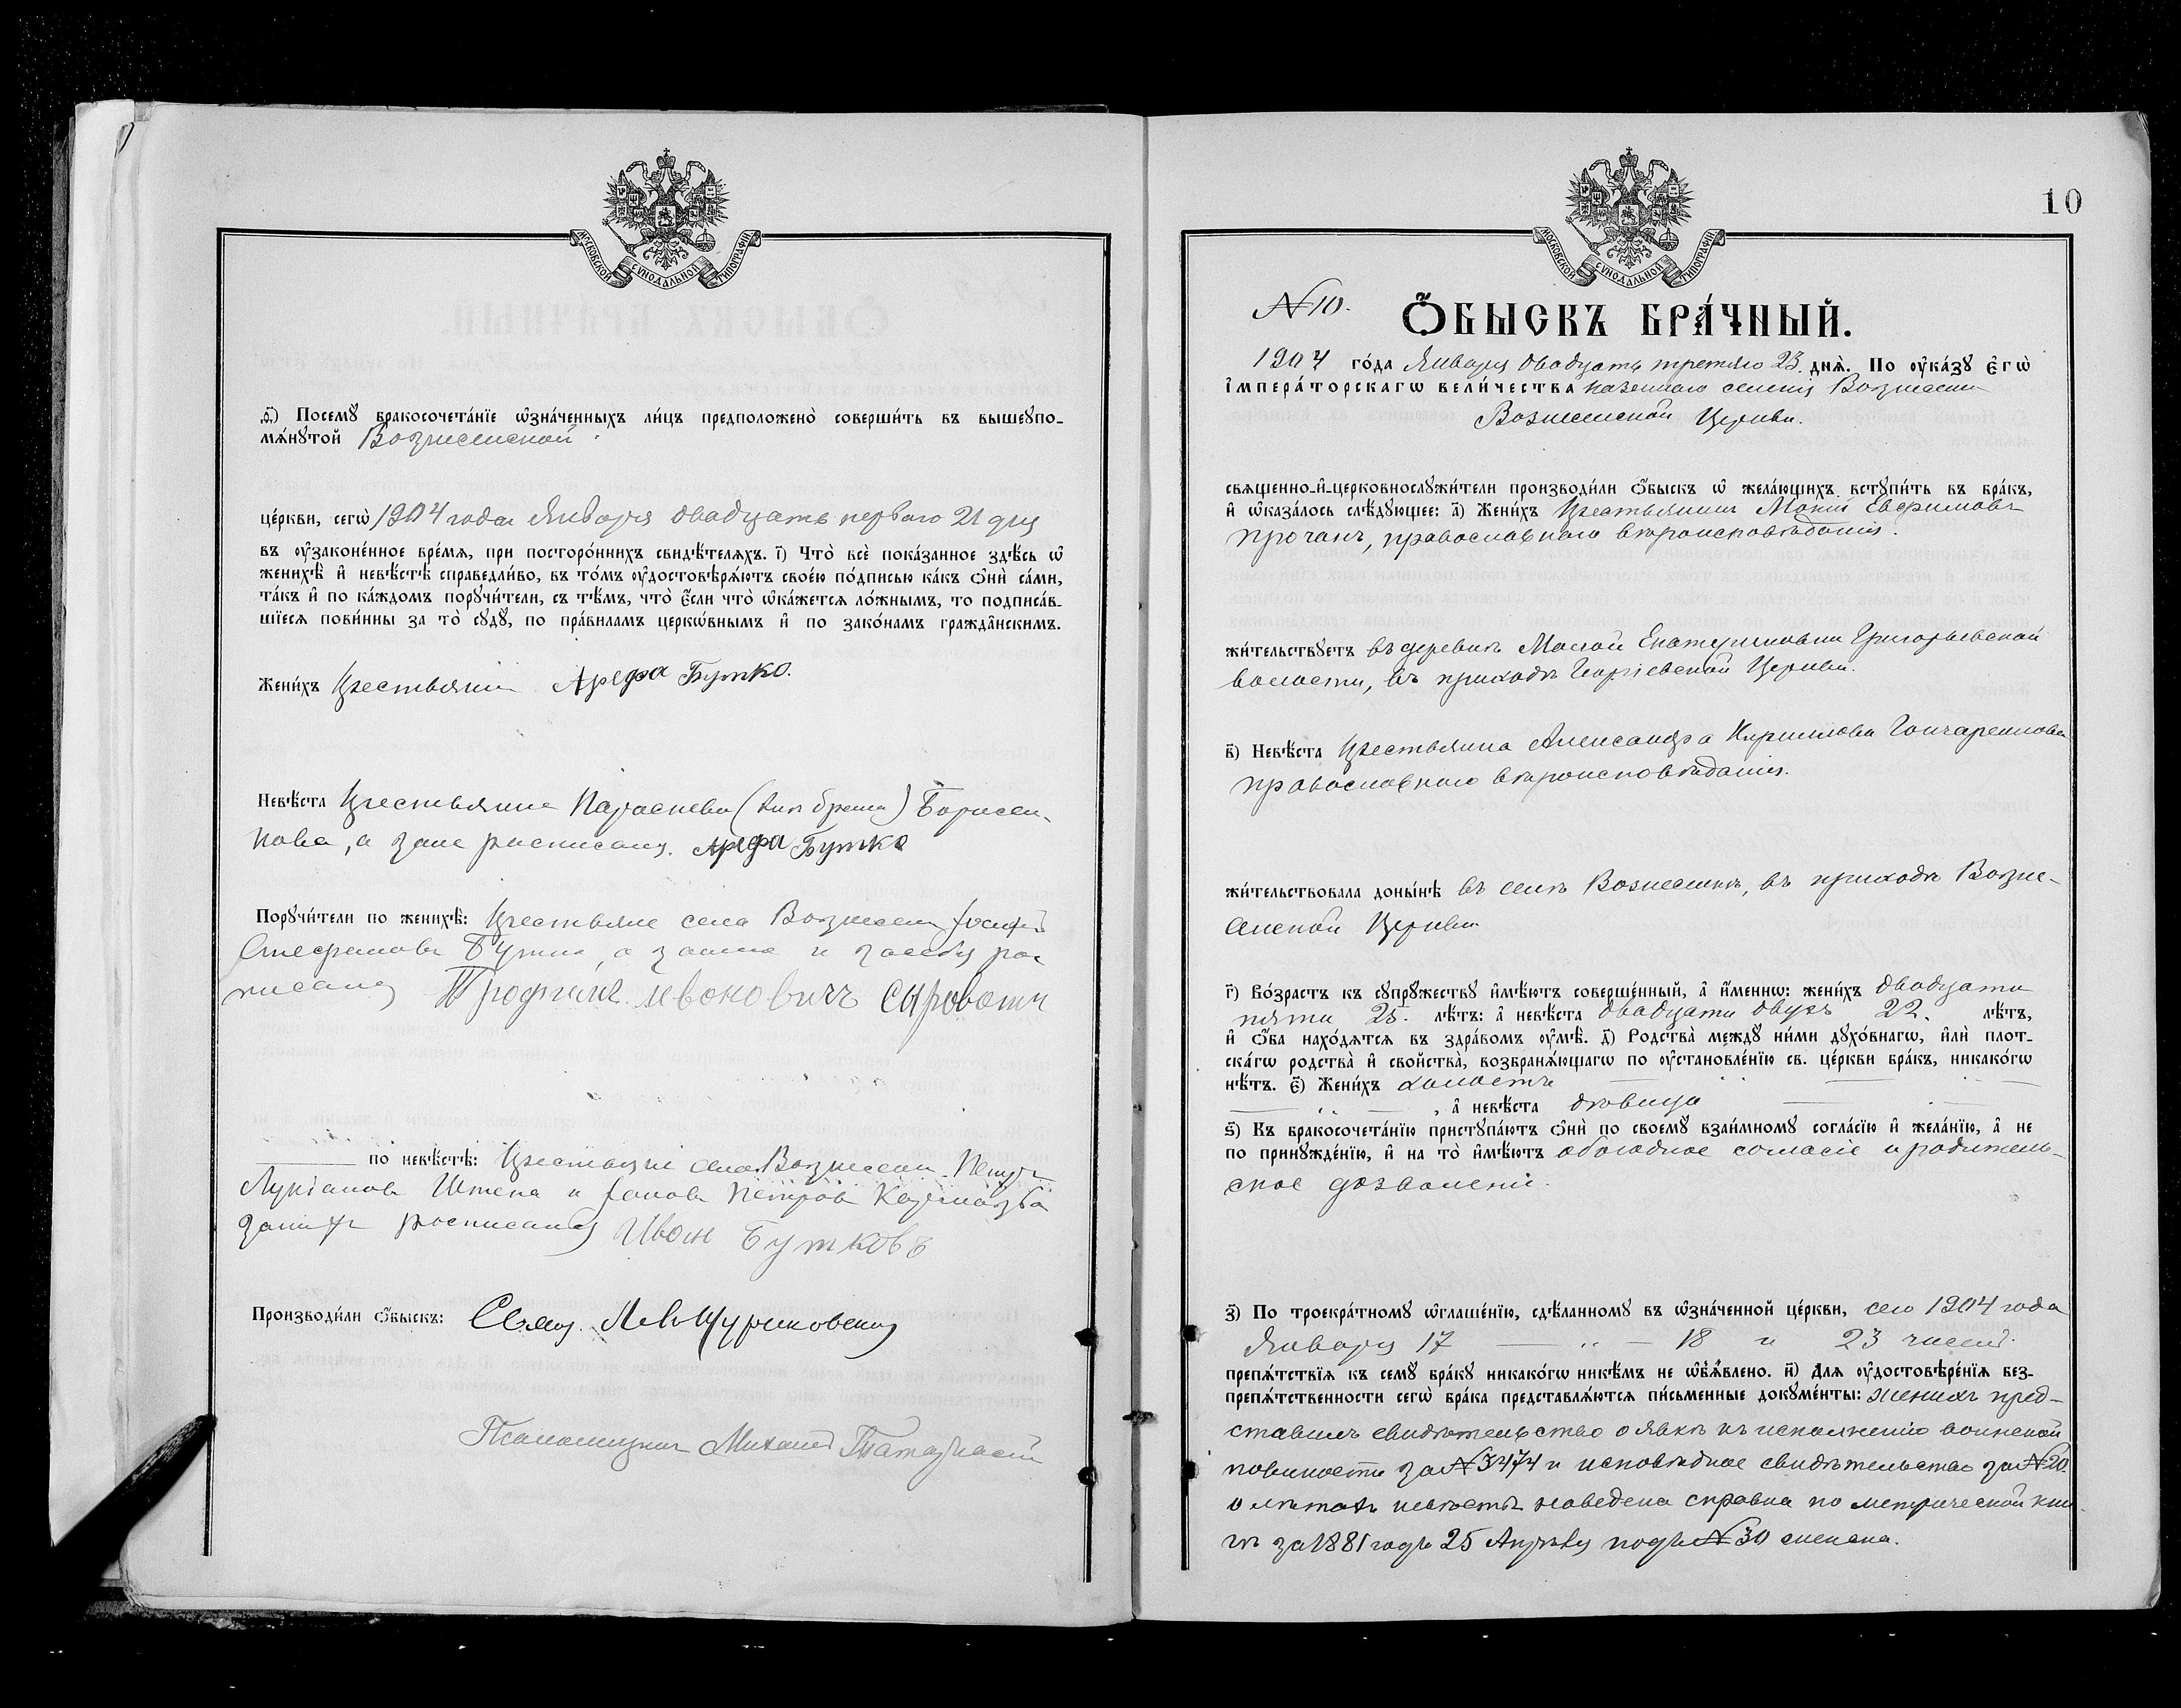 МОСКОВСКОЙ СѴНОДАЛЬНОЙ ТИПОГРАФІИ
ѳ҃) Посемꙋ бракосочета́нїе ѡ҆зна́ченныхъ ли́цъ предположено̀ соверши́ть въ вышеꙋпо-
мѧ́нꙋтой Вознесенской
це́ркви, сегѡ̀ 1904 года Января двадцать перваго 21 дня
въ ᲂу҆зако́ненное вре́мѧ, при посторо́ннихъ свидѣ́телѧхъ. і҃) Что̀ всѐ пока́занное здѣ́сь ѡ҆
женихѣ̀ и҆ невѣ́стѣ справедли́во, въ то́мъ ᲂу҆достовѣрѧ́ютъ свое́ю по́дписью ка́къ ѻ҆нѝ са́ми,
та́къ и҆ по ка́ждомъ порꙋчи́тели, съ тѣ́мъ, что̀ є҆́сли что̀ ѡ҆ка́жетсѧ ло́жнымъ, то подписа́в-
шїесѧ пови́нны за то̀ сꙋдꙋ̀, по пра́виламъ церко́внымъ и҆ по зако́намъ гражда́нскимъ.
Жени́хъ Крестьянин Арефа Бутко.
Невѣ́ста Крестьянка Параскева Борисен-
кова, а за нее росписался Арефа Бутко
Порꙋчи́тели по женихѣ̀: Крестьяне села Вознесенки Іосифъ
Стефановъ Бутко, а за него и за себя рос
писался Трофимъ Сыроватъ
по невѣ́стѣ: Крестьяне села Вознесенки Петръ
Лукіановъ Штепа и Іаковъ Петровъ
за них росписался Иван Бутковъ
Производи́ли ѻ҆́быскъ: Свящ.
Псаломщикъ Михаил
10
МОСКОВСКОЙ СѴНОДАЛЬНОЙ ТИПОГРАФІИ
№ 10. Ѻ҆́БЫСКЪ БРА́ЧНЫЙ.
1904 го́да Января двадцать третьяго 23 днѧ̀. По ᲂу҆ка́зꙋ є҆гѡ̀
і҆мпера́торскагѡ вели́чества казеннаго селенія Вознесенки
Вознесенской Церкви.
свѧще́нно-и҆-церковнослꙋжи́тели производи́ли ѻ҆́быскъ ѡ҆ жела́ющихъ встꙋпи́ть въ бра́къ,
и҆ ѡ҆каза́лось слѣ́дꙋющее: а҃) Жени́хъ Крестьянинъ Мокій Евфимовъ
Прочанъ, православнаго вѣроисповѣданія.
жи́тельствꙋетъ въ деревнѣ Малой Екатериновки Григорьевской
волости, въ приходѣ Георгіевской Церкви.
в҃) Невѣ́ста Крестьянка Александра Кириллова Гончаренкова
православнаго вѣроисповѣданія.
жи́тельствовала доны́нѣ въ селѣ Вознесенкѣ, въ приходѣ Возне-
сенской Церкви
г҃) Во́зрастъ къ сꙋпрꙋ́жествꙋ и҆мѣ́ютъ соверше́нный, а҆ и҆́меннѡ: жени́хъ двадцати
пяти 25. лѣ́тъ: а҆ невѣ́ста двадцати двухъ 22. лѣ́тъ,
и҆ ѻ҆́ба нахо́дѧтсѧ въ здра́вомъ ᲂу҆мѣ̀. д҃) Родства̀ междꙋ̀ ни́ми дꙋхо́внагѡ, и҆лѝ плот-
ска́гѡ родства̀ и҆ свойства̀, возбранѧ́ющагѡ по ᲂу҆становле́нїю св. це́ркви бра́къ, никако́гѡ
нѣ́тъ. є҃) Жени́хъ холостъ
, а҆ невѣ́ста дѣвица
ѕ҃) Къ бракосочета́нїю пристꙋпа́ютъ ѻ҆нѝ по своемꙋ̀ взаи́мномꙋ согла́сїю и҆ жела́нїю, а҆ не
по принꙋжде́нїю, и҆ на то̀ и҆мѣ́ютъ обоюдное согласіе и родитель-
ское дозволеніе.
з҃) По троекра́тномꙋ ѡ҆глаше́нїю, сдѣ́ланномꙋ въ ѡ҆зна́ченной це́ркви, сего 1904 года
Января 17 — „ — 18 и 23 чиселъ.
препѧ́тствїѧ къ семꙋ̀ бра́кꙋ никако́гѡ никѣ́мъ не ѡ҆бъѧ́влено. и҃) Длѧ ᲂу҆достовѣре́нїѧ без-
препѧ́тственности сегѡ̀ бра́ка представлѧ́ютсѧ пи́сьменные докꙋме́нты: женихъ пред-
ставилъ свидѣтельство о явкѣ къ исполненію воинской
повинности за № 3474 и исповѣдное свидѣтельство за № 20.
о лѣтахъ невѣсты наведена справка по метрической кни
гѣ за 1881 годъ 25 Апрѣля подъ № 30 женска.